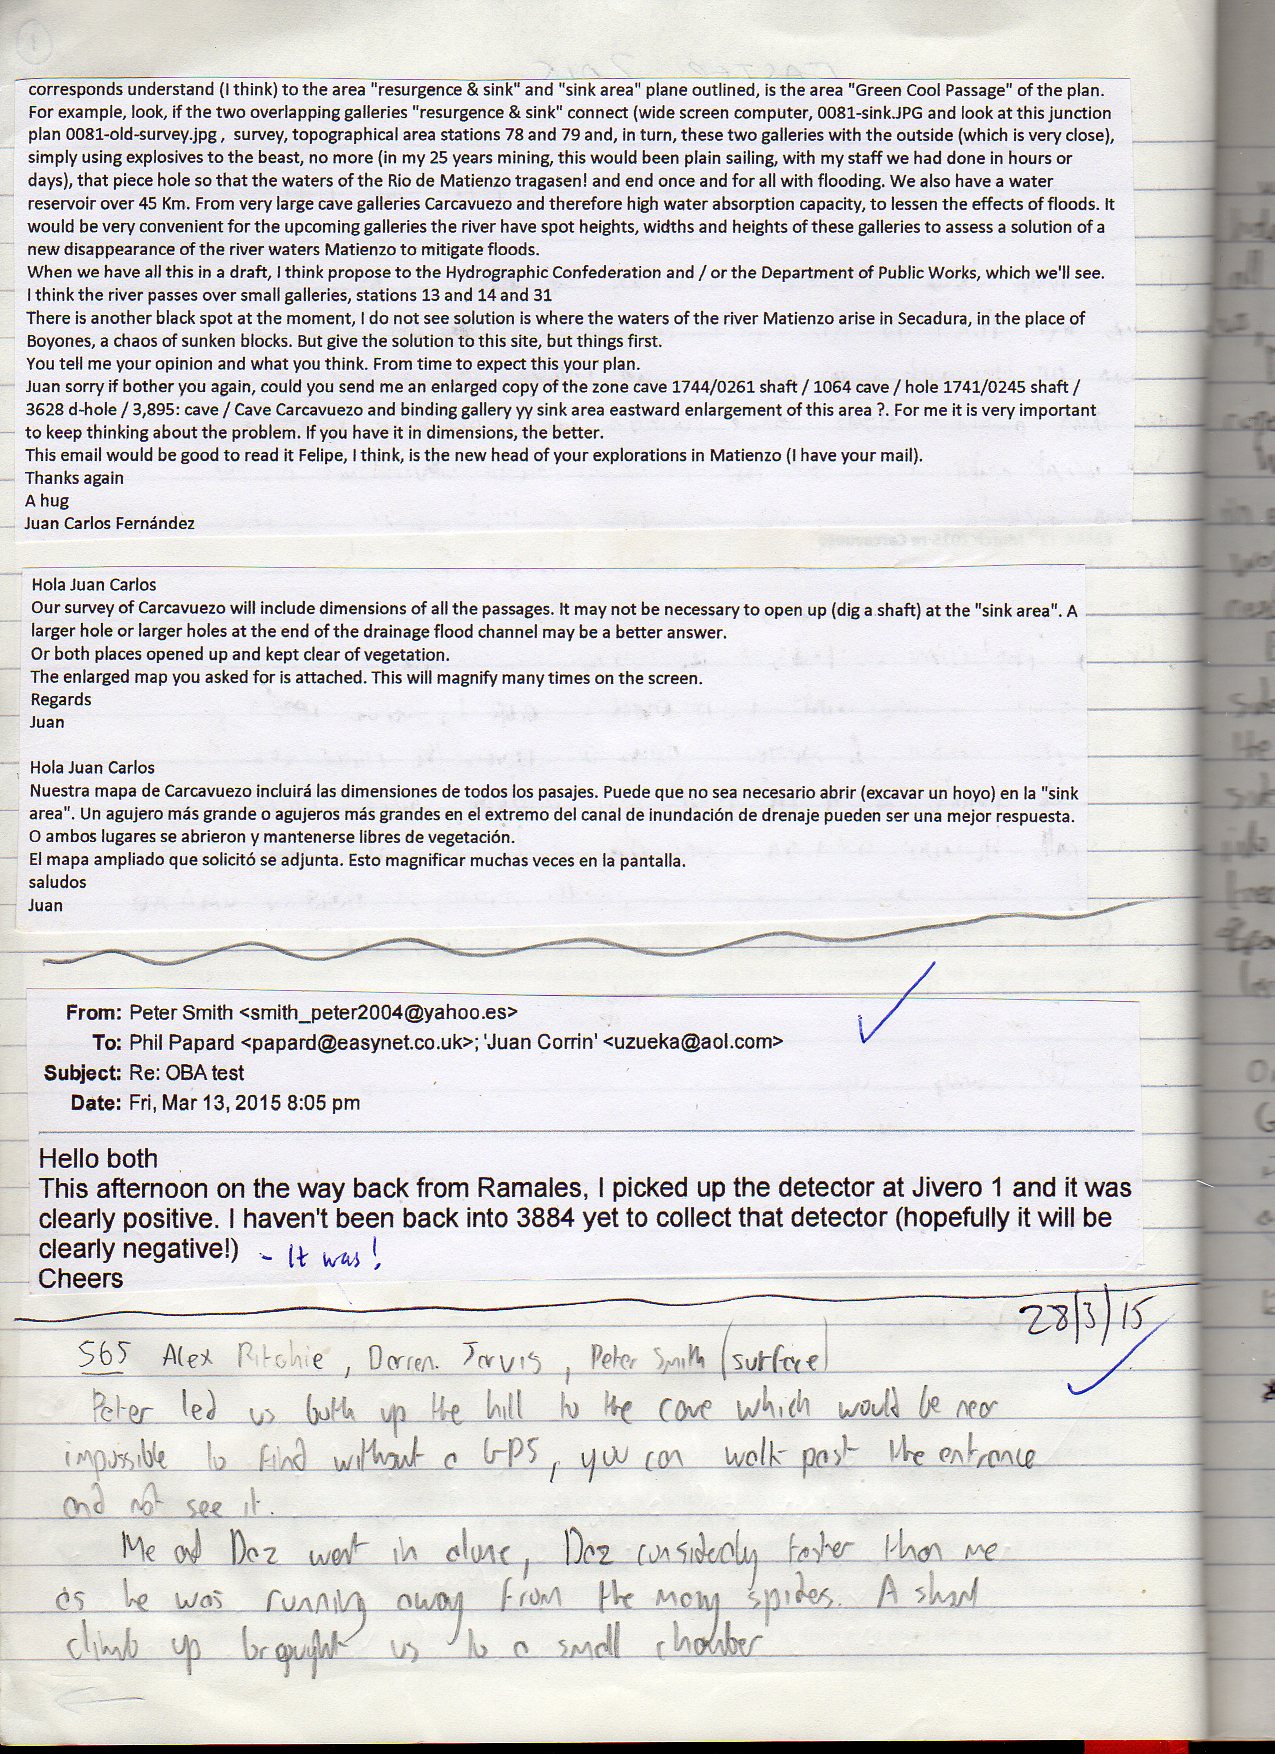 corresponds understand (I think) to the area "resurgence & sink" and "sink area" plane outlined, is the area "Green Cool Passage" of the plan.
For example, look, if the two overlapping galleries "resurgence & sink" connect (wide screen computer, 0081-sink.JPG and look at this junction
plan 0081-old-survey.jpg , survey, topographical area stations 78 and 79 and, in turn, these two galleries with the outside (which is very close),
simply using explosives to the beast, no more (in my 25 years mining, this would been plain sailing, with my staff we had done in hours or
days), that piece hole so that the waters of the Rio de Matienzo tragasen! and end once and for all with flooding. We also have a water
reservoir over 45 Km. From very large cave galleries Carcavuezo and therefore high water absorption capacity, to lessen the effects of floods. It
would be very convenient for the upcoming galleries the river have spot heights, widths and heights of these galleries to assess a solution of a
new disappearance of the river waters Matienzo to mitigate floods.
When we have all this in a draft, I think propose to the Hydrographic Confederation and / or the Department of Public Works, which we'll see.
I think the river passes over small galleries, stations 13 and 14 and 31
There is another black spot at the moment, I do not see solution is where the waters of the river Matienzo arise in Secadura, in the place of
Boyones, a chaos of sunken blocks. But give the solution to this site, but things first.
You tell me your opinion and what you think. From time to expect this your plan.
Juan sorry if bother you again, could you send me an enlarged copy of the zone cave 1744/0261 shaft / 1064 cave / hole 1741/0245 shaft /
3628 d-hole / 3,895: cave / Cave Carcavuezo and binding gallery yy sink area eastward enlargement of this area ?. For me it is very important
to keep thinking about the problem. If you have it in dimensions, the better.
This email would be good to read it Felipe, I think, is the new head of your explorations in Matienzo (I have your mail).
Thanks again
A hug
Juan Carlos Fernández
Hola Juan Carlos
Our survey of Carcavuezo will include dimensions of all the passages. It may not be necessary to open up (dig a shaft) at the "sink area". A
larger hole or larger holes at the end of the drainage flood channel may be a better answer.
Or both places opened up and kept clear of vegetation.
The enlarged map you asked for is attached. This will magnify many times on the screen.
Regards
Juan
Hola Juan Carlos
Nuestra mapa de Carcavuezo incluirá las dimensiones de todos los pasajes. Puede que no sea necesario abrir (excavar un hoyo) en la "sink
area". Un agujero más grande o agujeros más grandes en el extremo del canal de inundación de drenaje pueden ser una mejor respuesta.
O ambos lugares se abrieron y mantenerse libres de vegetación.
El mapa ampliado que solicitó se adjunta. Esto magnificar muchas veces en la pantalla.
saludos
Juan
From: Peter Smith <smith_peter2004@yahoo.es>
To: Phil Papard <papard@easynet.co.uk>; 'Juan Corrin' <uzueka@aol.com>
Subject: Re: OBA test
Date: Fri, Mar 13, 2015 8:05 pm
Hello both
This afternoon on the way back from Ramales, I picked up the detector at Jivero 1 and it was
clearly positive. I haven't been back into 3884 yet to collect that detector (hopefully it will be
clearly negative!) - It was!
Cheers
28/3/15
565 Alex Ritchie, Darren Jarvis, Peter Smith (surface)
Peter led us both up the hill to the cave which would be near
impossible to find without a GPS, you can walk past the entrance
and not see it.
Me and Daz went in alone, Daz considerly faster than me
as he was running away from the many spides. A short
climb up brought us to a small chamber